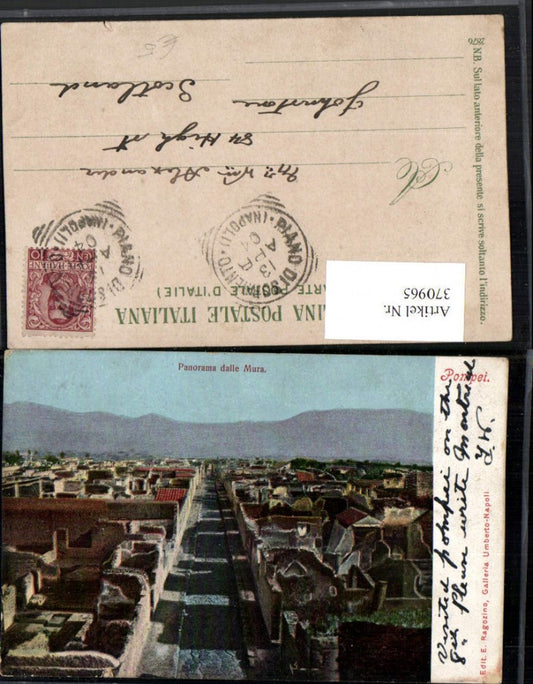 NB. Sul lato anteriore della presente si scrive soltanto l'indirizzo.
2876
CARTOLINA POSTALE ITALIANA
(CARTE POSTALE D'ITALIE)
Artikel Nr.
370965
PIANO DI SORRENTO
(NAPOLI)
13
04
PIANO DI SOR
(NAPOLI)
04
A
Alexander
84 High St
Johnstone
Scotland
€5
Panorama dalle Mura.
Pompei.
Visited pompei on the
8th Please write Montreal
Edit. E. Ragozino, Galleria Umberto-Napoli